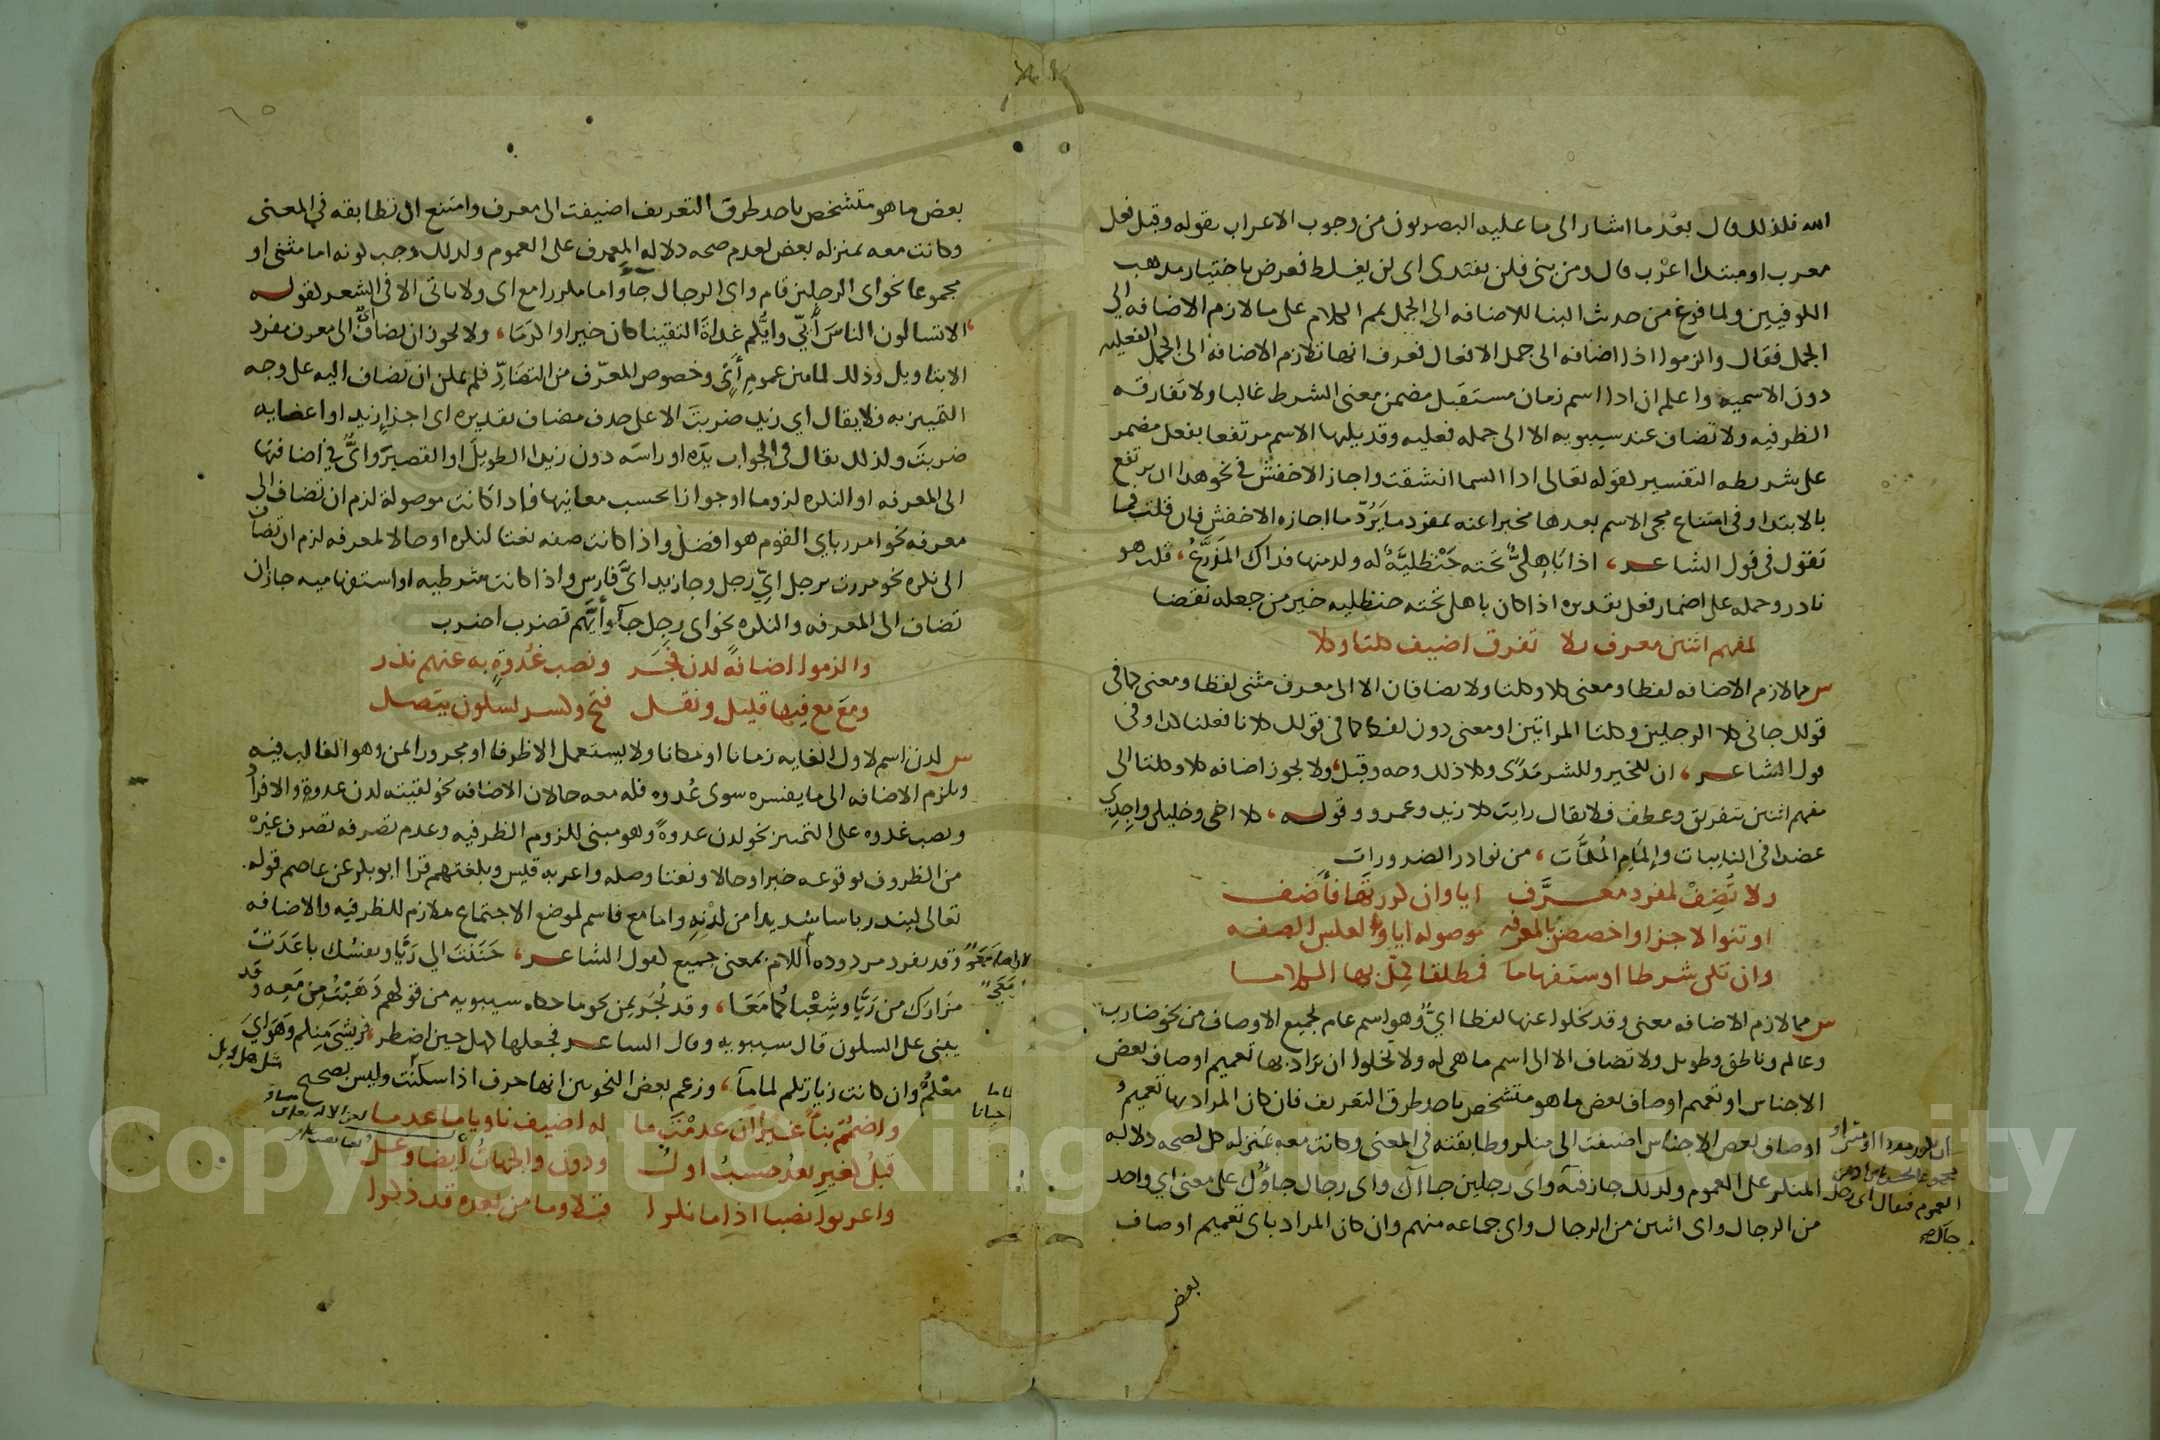 الله فلذلك قال بعد ما اشار الى ما عليه البصريون من وجوب الاعراب بقوله وقبل فعل
معرب او مبتدا اعرب قال ومن بنى فلن يفندى اى لن يغلط فعرض باختيار مذهب
الكوفيين ولما فرغ من حديث البنا للاضافه الى الجمل تمم الكلام على ما لازم الاضافه الى
الجمل فقال والزموا اذا اضافه الى جمل الافعال فعرف انها تلازم الاضافه الى الجمل الفعليه
دون الاسميه واعلم ان اذا اسم زمان مستقبل مضمن معنى الشرط غالبا ولا تفارقه
الظرفيه ولا تضاف عند سيبويه الا الى جمله فعليه وقد يليها الاسم مرتفعا بفعل مضمر
على شريطه التفسير كقوله تعالى اذا السما انشقت واجاز الاخفش فى نحو هذا ان يرتفع
بالابتدا وفى امتناع مجى الاسم بعدها مخبرا عنه بمفرد ما يَرُدّ ما اجازه الاخفش فان قلت فما
تقول فى قول الشاعر، اذا بَاهِلىٌّ تحته حَنْظليَّةٌ له ولد منها فذاك المذَرَّعُ، قلت هو
نادر وحمله على اضمار فعل تقديره اذا كان باهلى تحته حنظليه خير من جعله نقضا
لمفهم اثنين معرف بلا تفرق اضيف كلتا وكلا
س مما لازم الاضافه لفظا ومعنى كلا وكلتا ولا يضافان الا الى معرف مثنى لفظا ومعنى كما فى
قولك جانى كلا الرجلين وكلتا المراتين او معنى دون لفظ كما فى قولك كلانا فعلنا كذا وفى
قول الشاعر، ان للخير وللشر مَدًى وكلا ذلك وجه وقبل، ولا يجوز اضافه كلا وكلتا الى
مفهم اثنين بتفريق وعطف فلا يقال رايت كلا زيد وعمرو وقوله، كلا اخى وخليلى واجدى
عضدا فى النايبات وإلمَامِ المُلمَّات، من نوادر الضرورات
ولا تُضِفْ لمفرد معرَّف ايا وان كررتَها فأضف
او تنوا الاجزا واخصصن بالمعرفه موصوله ايا وبالعكس الصفه
وان تكن شرطا او ستفهاما فمطلقا كمِّل بها الكلاما
س مما لازم الاضافه معنى وقد يخلوا عنها لفظا ايٌّ وهو اسم عام لجميع الاوصاف من نحو ضارب
وعالم وناطق وطويل ولا تضاف الا الى اسم ما هى له ولا تخلوا ان يراد بها تعميم اوصاف بعض
الاجناس او تعميم اوصاف بعض ما هو متشخص باحد طرق التعريف فان كان المراد بها تعميم
اوصاف بعض الاجناس اضيفت الى منكر وطابقته فى المعنى وكانت معه بمنزله كل لصحه دلاله
المنكر على العموم ولذلك جاز فيه واى رجلين جااك واى رجال جاؤك على معنى اى واحد
من الرجال واى اثنين من الرجال واى جماعه منهم وان كان المراد باى تعميم اوصاف
بعض
العموم فيقال اى رجل
جاك
بعض ما هو متشخص باحد طرق التعريف اضيفت الى معرف وامتنع ان تطابقه فى المعنى
وكانت معه بمنزله بعض لعدم صحه دلاله المعرف على العموم ولذلك وجب كونه اما مثنى او
مجموعا نحو اى الرجلين قام واى الرجال جاؤا واما مكررا مع اى ولا ياتى الا فى الشعر كقوله
الا تسالون الناسَ أَيِّى وايُّكم غداةَ التقينا كان خيرا واكرَمَا، ولا يجوز ان يضاف اى الى معرف مفرد
الا بتاويل وذلك لما بين عموم أىٍّ وخصوص المعرّف من التضادّ فلم يمكن ان تضاف اليه على وجه
التمييز به فلا يقال اى زيد ضربتَ الا على حذف مضاف تقديره اى اجزا زيد او اعضايه
ضربتَ ولذلك يقال فى الجواب يدَه او راسَه دون زيدا الطويلَ او القصيرَ واىٌّ فى اضافتها
الى المعرفه او النكره لزوما او جوازا بحسب معانيها فاذا كانت موصولة لزم ان تضاف الى
معرفه نحو امرر باي القوم هو افضل واذا كانت صفه نعتا لنكره او حالا لمعرفه لزم ان تضاف
الى نكره نحو مررت برجل ايِّ رجل وجا زيد اىَّ فارس واذا كانت شرطيه او استفهاميه جاز ان
تضاف الى المعرفه والنكره نحو اى رجلٍ جآ وأيَّهم تضرب اضرب
والزموا اضافةً لدن فجَر ونصب غُدوةٍ به عنهم ندر
ومعَ مع فيها قليل ونقل فتح وكسر لسكون يتصل
س لدن اسم لاول الغايه زمانا او مكانا ولا يستعمل الا ظرفا او مجرورا بمن وهو الغالب فيه
ويلزم الاضافه الى ما يفسره سوى غُدوه فله معه حالان الاضافه نحو لقيته لدن غدوةٍ والافراد
ونصب غدوه على التمييز نحو لدن غدوةً وهو مبنى للزوم الظرفيه وعدم تصرفه تصرف غيره
من الظروف بوقوعه خبرا وحالا ونعتا وصله واعربه قيس وبلغتهم قرا ابو بكر عن عاصم قوله
تعالى لينذر باسا شديدا من لدْنِهِ واما مع فاسم لموضع الاجتماع ملازم للظرفيه والاضافه
وقد يفرد مردوده اللام بمعنى جميع كقول الشاعر، حَنَنْتَ الى رَيَّا ونفسُك باعَدَتْ
مَزارَك من رَيَّا وشِعْباكُما مَعَا، وقد تُجَر بمِن نحو ما حكاه سيبويه من قولهم ذَهَبْتُ مِن مَعِه وقد
يبنى على السكون قال سيبويه وقال الشاعر فجعلها كهل حين اضطر، فريشى مِنكم وهَوَاىَ
معْكمُ وان كانت زيارتكم لماما، وزعم بعض النحويين انها حرف اذا سكنت وليس بصحيح
واضمُمْ بِناً غيراً ان عدمْتَ ما له اضيف ناويا ما عدما
قبلُ كغيرُ بعدُ حَسْبُ اولُ ودون والجهاتُ أيضا وعلُ
واعربوا نصبا اذا ما نكرا قبلا وما من بعده قد ذكرا